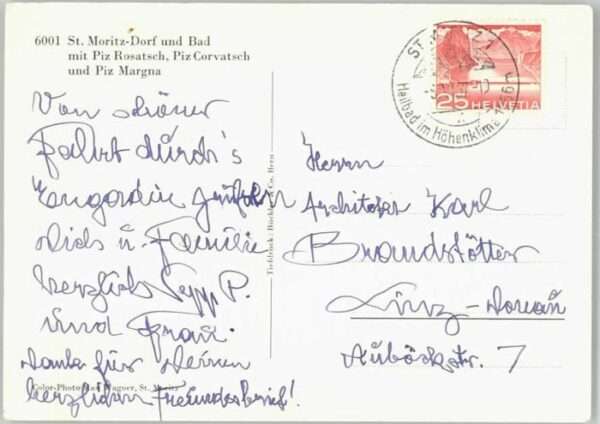 6001 St. Moritz-Dorf und Bad
mit Piz Rosatsch, Piz Corvatsch
und Piz Margna
Von schöner
Fahrt durch's
Engadin grüßen
Dich u. Familie
herzlich Sepp P.
und Frau.
Danke für Deinen
herzlichen Freundesbrief!
Color-Photo Max Wagner, St. Moritz
Tiefdruck: Büchler & Co. Bern
ST.
Heilbad im Höhenklima
25 HELVETIA
Herrn
Architekt Karl
Brandstötter
Linz-Donau
Auböckstr. 7